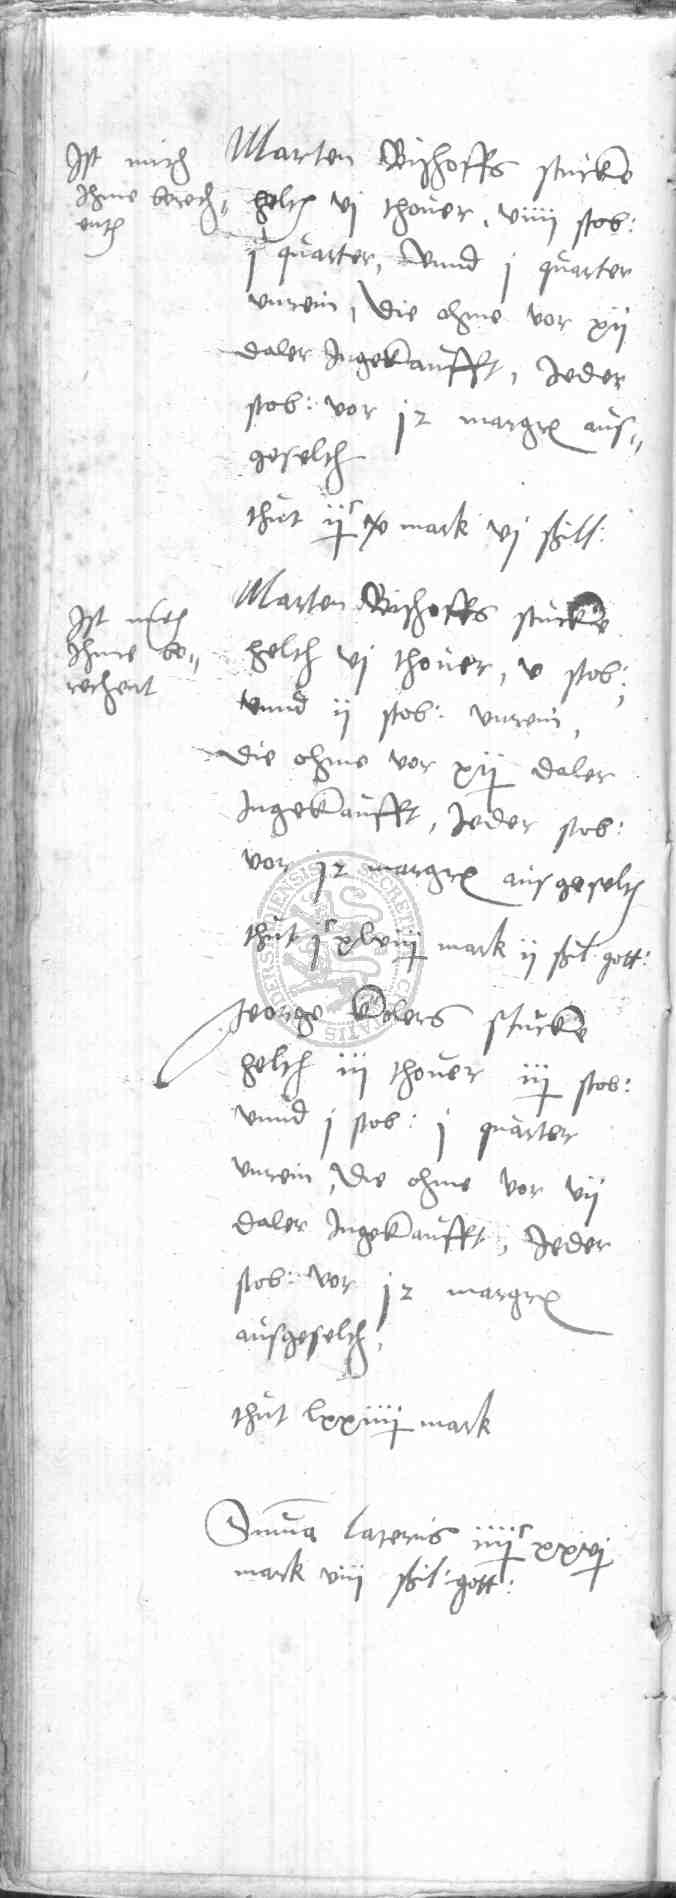 Ist mith
Ihme berech„
enth
Marten Bischoffs stücke
helth vj thover, viiii stob:
j quarter, Vnnd j quarter
vnrein, die ohme vor xij
daler Ingekaufft, Jeder
stob: vor j2 margrn aus„
geselth
thut ijc xv mark vj schill:
Ist mith
Ihme be„
rechent
Marten Bischoffs stücke
helth vj thover, v stob:
vnnd ij stob: vnrein,
die ohme vor xij daler
Ingekaufft, Jeder stob:
vor j2 margrn ausgeselth
thut jc xlviij mark ij schil gott:
Jeorge Kolers stücke
helth iij thover iij stob:
vnnd j stob: j quarter
vnrein, die ohme vor vij
daler Ingekaufft, Jeder
stob: vor j2 margrn
ausgeselth,
thut lxxiiij mark
Suma lateris iiijc xxxvj
mark viij schil gott: